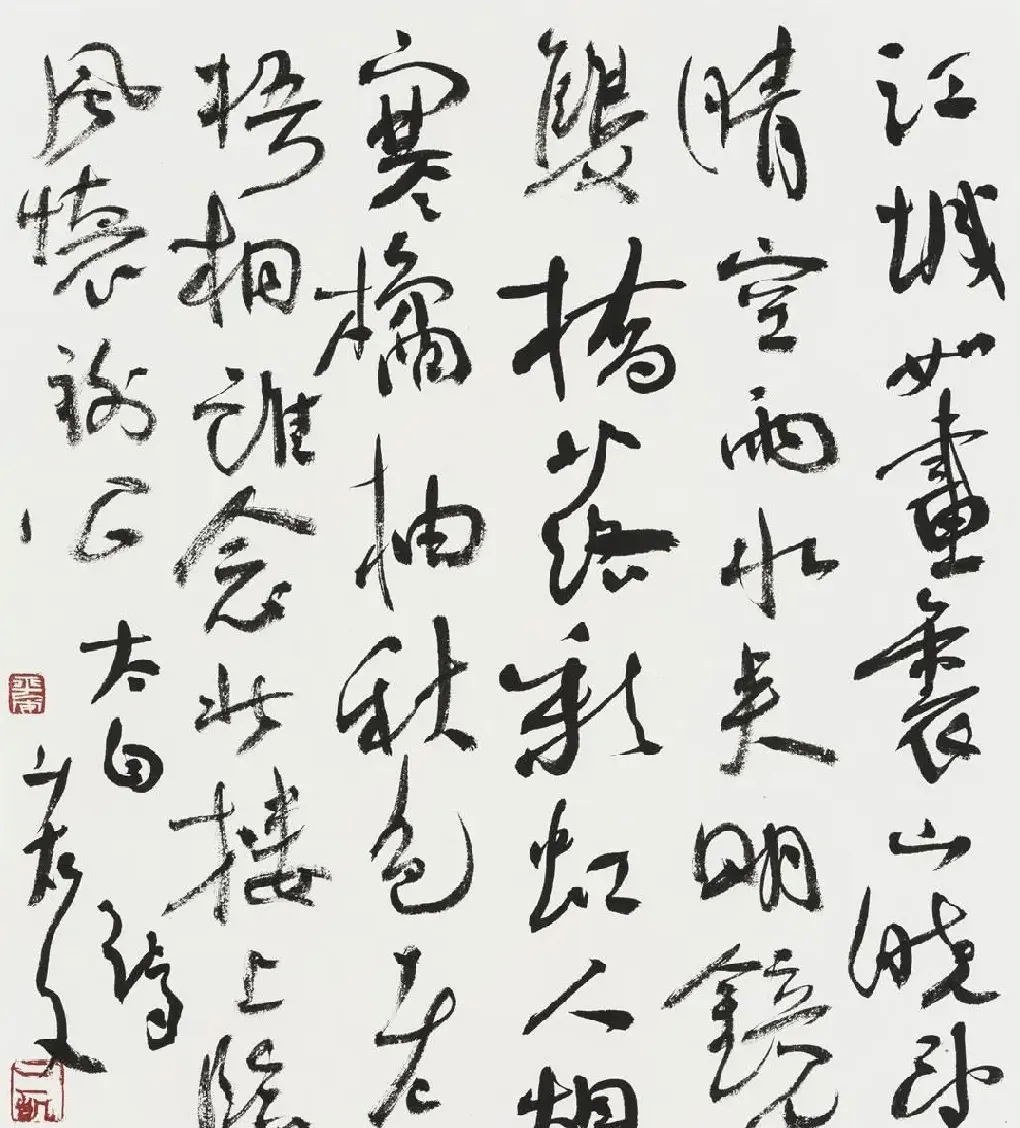 江城如畫裏山曉望
晴空雨水夾明鏡
雙橋落彩虹人烟
寒橘柚秋色老
梧桐誰念北樓上臨
風懷謝公
太白詩